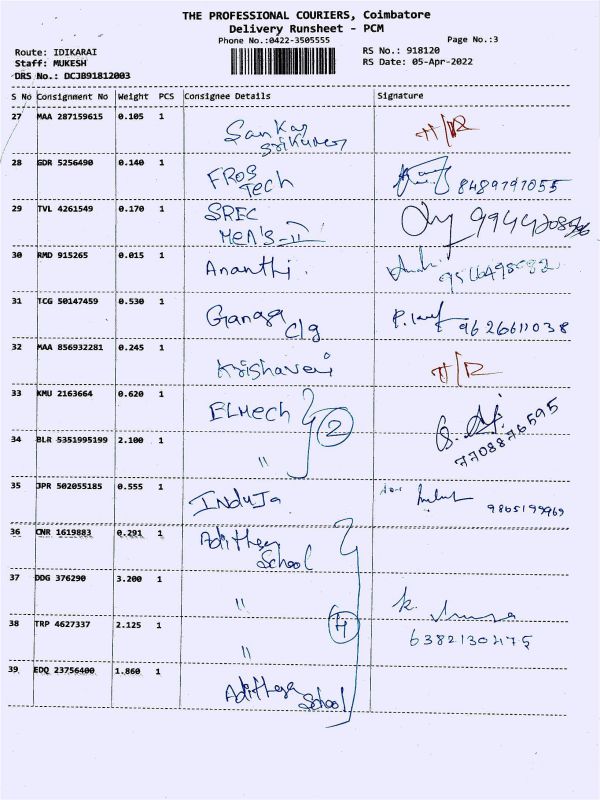 THE PROFESSIONAL COURIERS, Coimbatore
Delivery Runsheet - PCM
Phone No.:0422-3505555
Page No.:3
Route: IDIKARAI
RS No.: 918120
Staff: MUKESH
RS Date: 05-Apr-2022
DRS No.: DCJB91812003
S No Consignment No Weight PCS Consignee Details Signature
27 MAA 287159615 0.105 1
Sankar
Srikumar
28 GDR 5256490 0.140 1
FROS
Tech
8489797055
29 TVL 4261549 0.170 1
SREC
MEN'S-II
30 RMD 915265 0.015 1
Ananthi.
31 TCG 50147459 0.530 1
Ganga
Clg
9626611038
32 MAA 856932281 0.245 1
33 KMU 2163664 0.620 1
ELMECH
2
7708876595
34 BLR 5351995199 2.100 1
"
35 JPR 502055185 0.555 1
InduJa
9865199969
36 CNR 1619883 0.291 1
Adithya
School
37 DDG 376290 3.200 1
"
38 TRP 4627337 2.125 1
"
4
6382130475
39 EDQ 23756400 1.860 1
Adithya
School